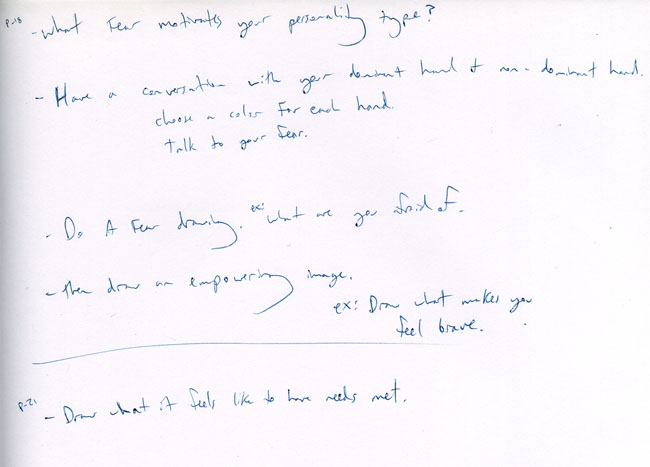 p-18 - What Fear motivates your personality type?
- Have a conversation with your dominant hand & non-dominant hand.
choose a color for each hand.
Talk to your fear.
- Do A Fear drawing. ex: what are you afraid of.
- then draw an empowering image.
ex: Draw what makes you
feel brave.
p-21 - Draw what it feels like to have needs met.